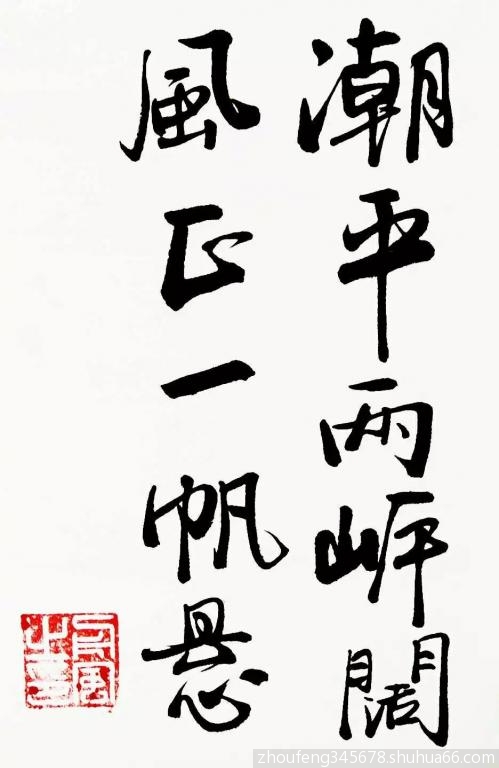 潮平兩岸闊
風正一帆懸
zhoufeng345678.shuhua66.com